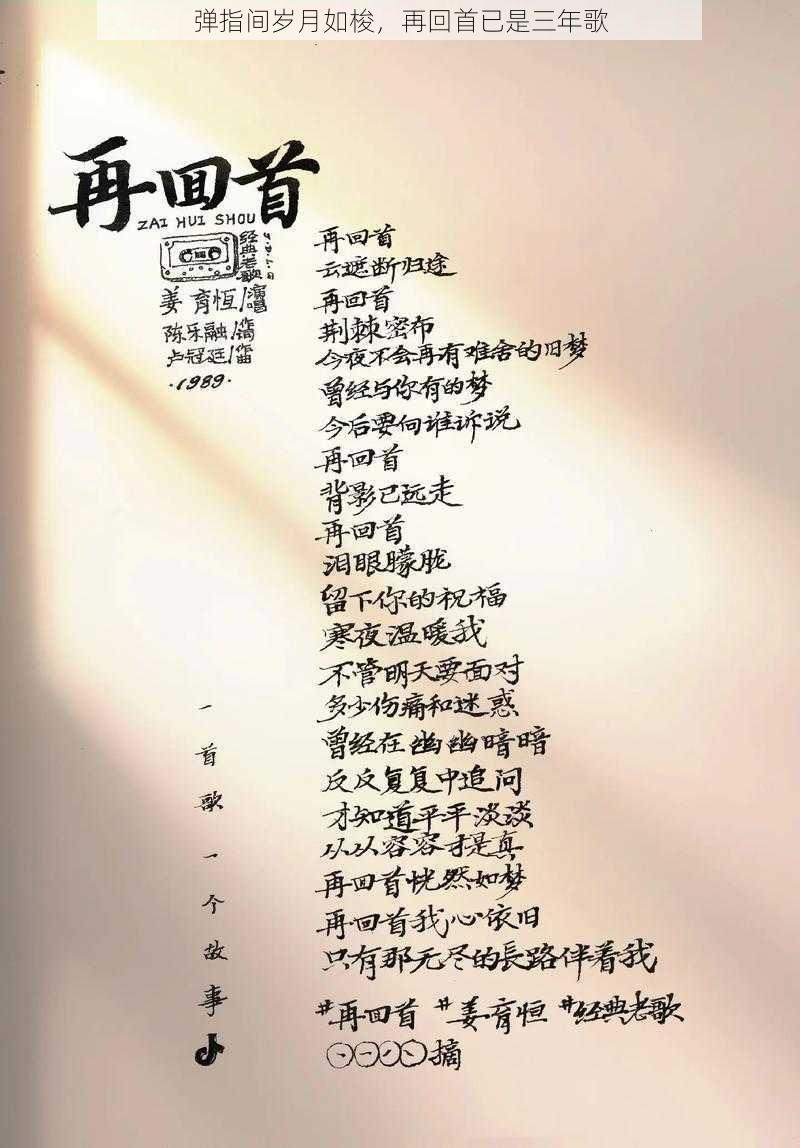 弹指间岁月如梭，再回首已是三年歌
再回首
ZAI HUI SHOU
经典老歌
姜育恒/演唱
陈乐融/作词
卢冠廷/作曲
·1989·
再回首
云遮断归途
再回首
荆棘密布
今夜不会再有难舍的旧梦
曾经与你有的梦
今后要向谁诉说
再回首
背影已远走
再回首
泪眼朦胧
留下你的祝福
寒夜温暖我
不管明天要面对
多少伤痛和迷惑
曾经在幽幽暗暗
反反复复中追问
才知道平平淡淡
从从容容才是真
再回首恍然如梦
再回首我心依旧
只有那无尽的長路伴着我
#再回首 #姜育恒 #经典老歌
摘
一首歌一个故事